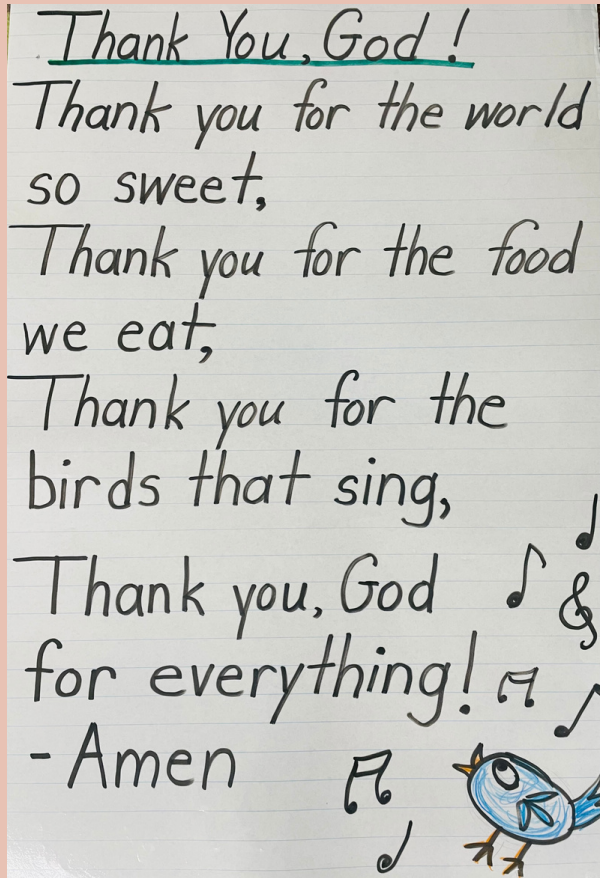 Thank You, God!
Thank you for the world
so sweet,
Thank you for the food
we eat,
Thank you for the
birds that sing,
Thank you, God
for everything!
- Amen